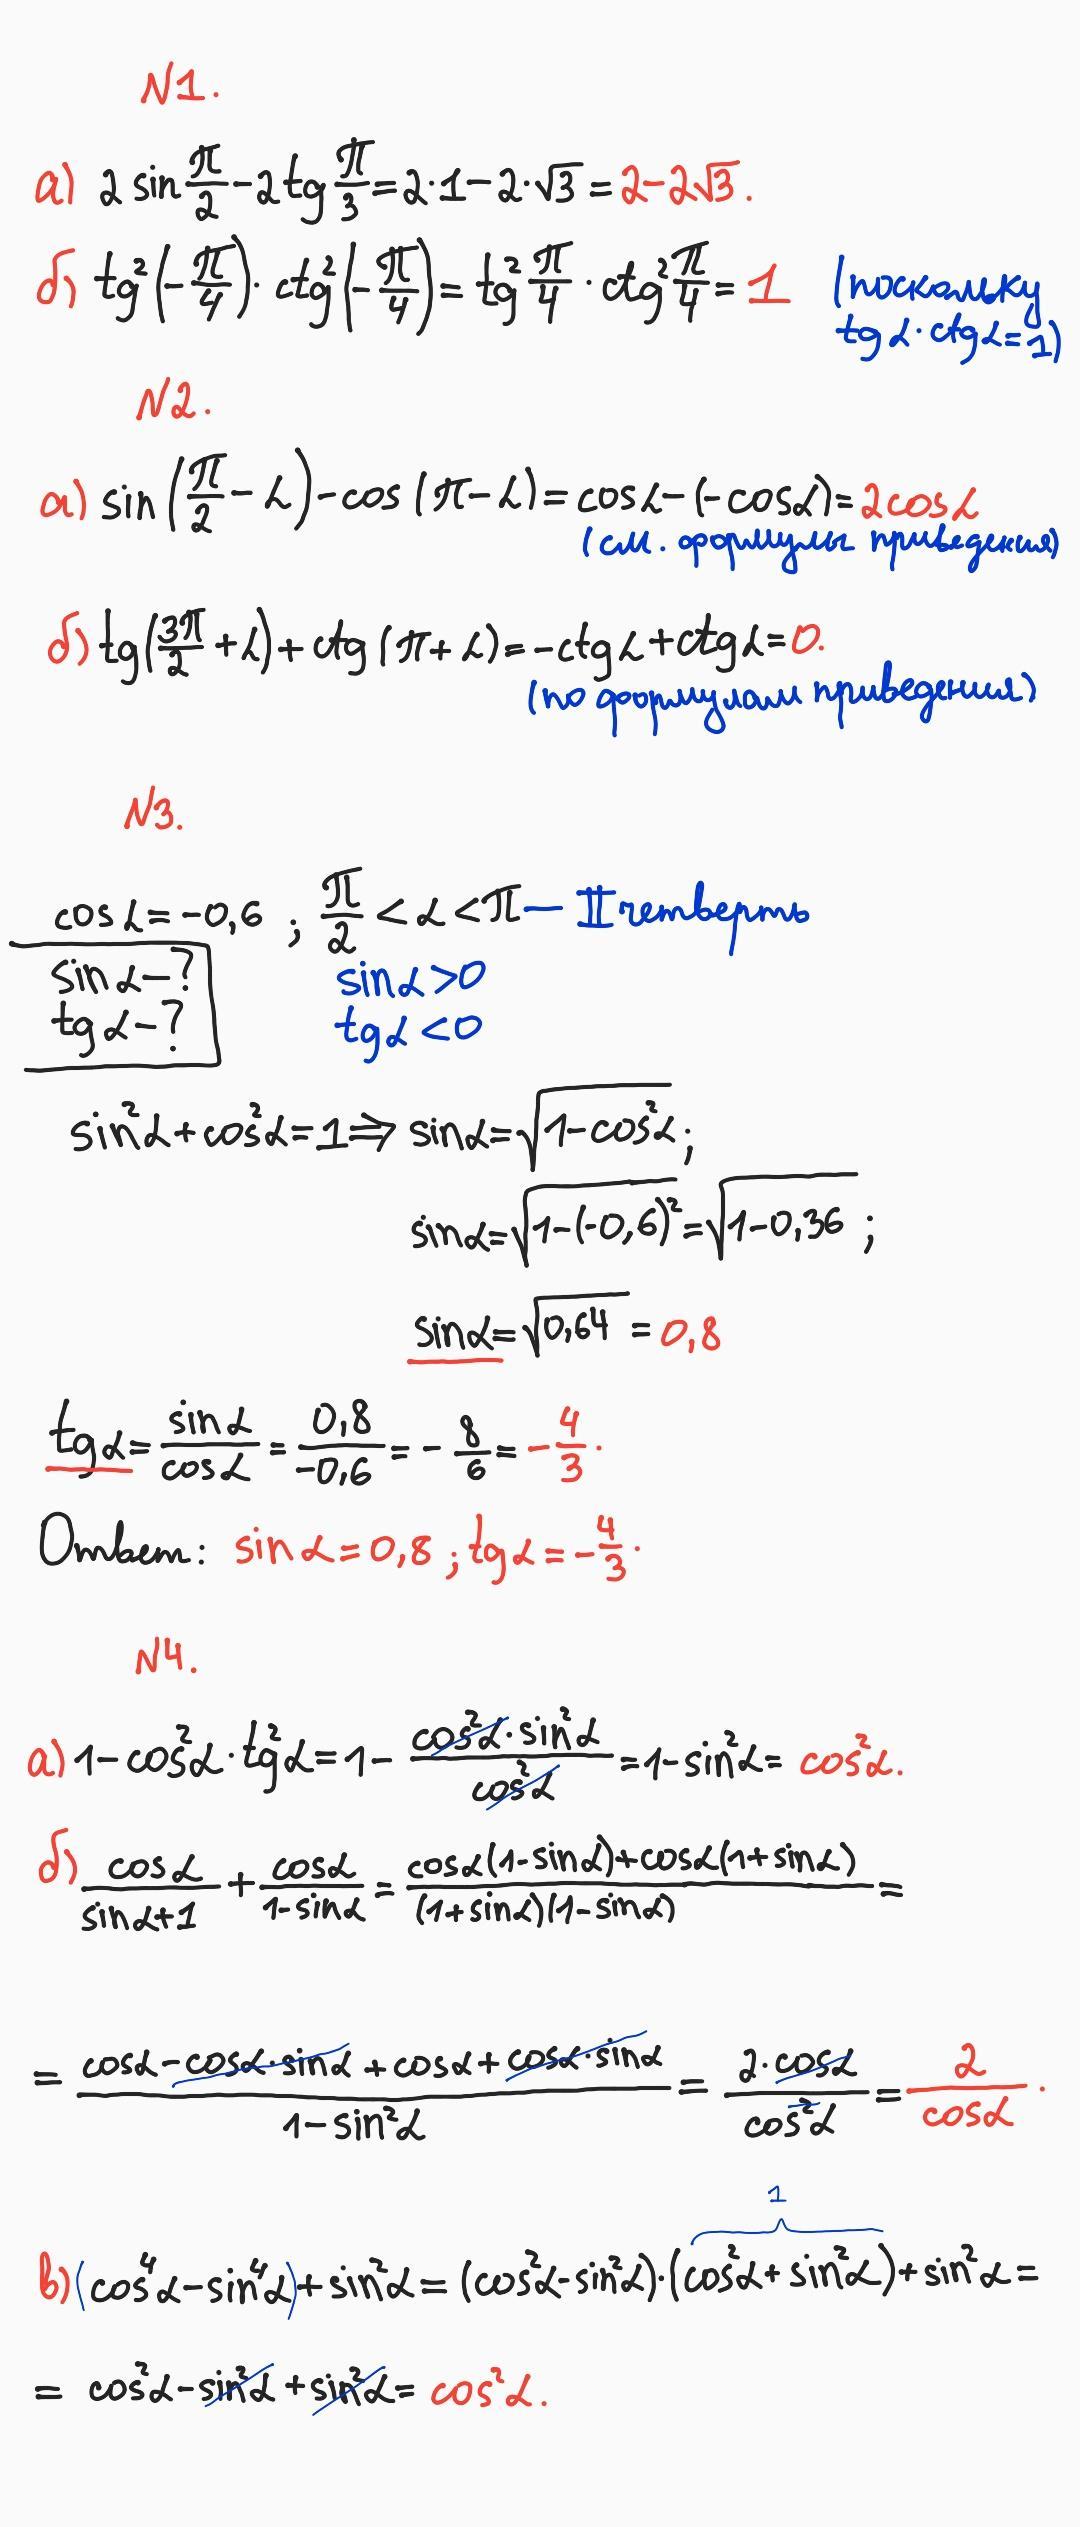 N1.
а) 2 sin π/2 − 2 tg π/3 = 2·1 − 2·√3 = 2−2√3.
б) tg²(−π/4) · ctg²(−π/4) = tg² π/4 · ctg² π/4 = 1 (поскольку
tg α · ctg α = 1)
N2.
а) sin(π/2 − α) − cos(π − α) = cos α − (− cos α) = 2 cos α
(см. формулы приведения)
б) tg(3π/2 + α) + ctg(π + α) = −ctg α + ctg α = 0.
(по формулам приведения)
N3.
cos α = −0,6 ; π/2 < α < π — II четверть
sin α − ? sin α > 0
tg α − ? tg α < 0
sin²α + cos²α = 1 ⇒ sin α = √(1 − cos²α) ;
sin α = √(1−(−0,6)²) = √(1−0,36) ;
sin α = √0,64 = 0,8
tg α = sin α/cos α = 0,8/−0,6 = − 8/6 = − 4/3 .
Ответ: sin α = 0,8 ; tg α = − 4/3 .
N4.
а) 1 − cos²α · tg²α = 1 − cos²α · sin²α/cos²α = 1 − sin²α = cos²α.
б) cos α/sin α+1 + cos α/1−sin α = cos α(1−sin α)+cos α(1+sin α)/(1+sin α)(1−sin α) =
= cos α − cos α · sin α + cos α + cos α · sin α/1−sin²α = 2·cos α/cos²α = 2/cos α .
1
в) (cos⁴α − sin⁴α) + sin²α = (cos²α − sin²α)·(cos²α + sin²α) + sin²α =
= cos²α − sin²α + sin²α = cos²α.